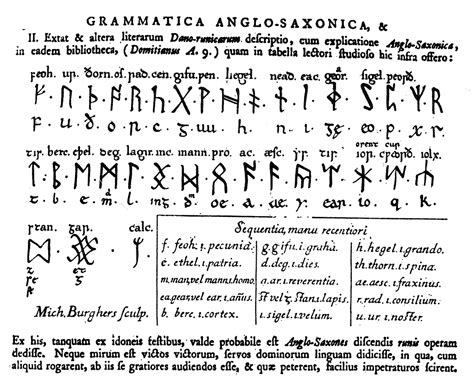 GRAMMATICA ANGLO-SAXONICA, &
II. Extat & altera literarum Dano-runicarum descriptio, cum explicatione Anglo-Saxonica,
in eadem bibliotheca, (Domitianus A. 9.) quam in tabella lectori studioso hic infra offero:
feoh. ur. ðorn. os. rad. cen. gifu. pen. hegel. nead. eac. geor. sigel. peorð.
ᚠ · ᚢ · ᚦ · ᚩ · ᚱ · ᚳ · ᚷ · ᚹ · ᚻ · ᚾ · ᛁ
f. u. ð. o. r. c. g. uu. h. n. i. ge. eo. p. x. s.
tir. berc. eþel. deg. lagu. inc. mann. pro. ac. æsc. yr. tir.
orent cur
ior. cpeorð. iolx.
t. b. e. d. l. g. ð. oe. a. ae. y. ear. io. q. k.
stan. gar. calc.
z
st
Mich. Burghers sculp.
Sequentia, manu recentiori
f. feoh: ı. pecunia. g. gifu. ı. gratia. h. hegel. ı. grando.
e. ethel. ı. patria. d. deg. ı. dies. th. thorn. ı. spina.
m. man, vel mann. ı. homo. a. ar. ı. reverentia. ae. aesc. ı. fraxinus.
ea. gear, vel ear. ı. añus. st vel stan. ı. lapis. r. rad. ı. consilium.
b. berc. ı. cortex. s. sigel. ı. velum. u. ur. ı. noster.
Ex his, tanquam ex idoneis testibus, valde probabile est Anglo-Saxones discendis runis operam
dedisse. Neque mirum est victos victorum, servos dominorum linguam didicisse, in qua, cum
aliquid rogarent, ab iis se gratiores audiendos esse, & quæ peterent, facilius impetraturos scirent.